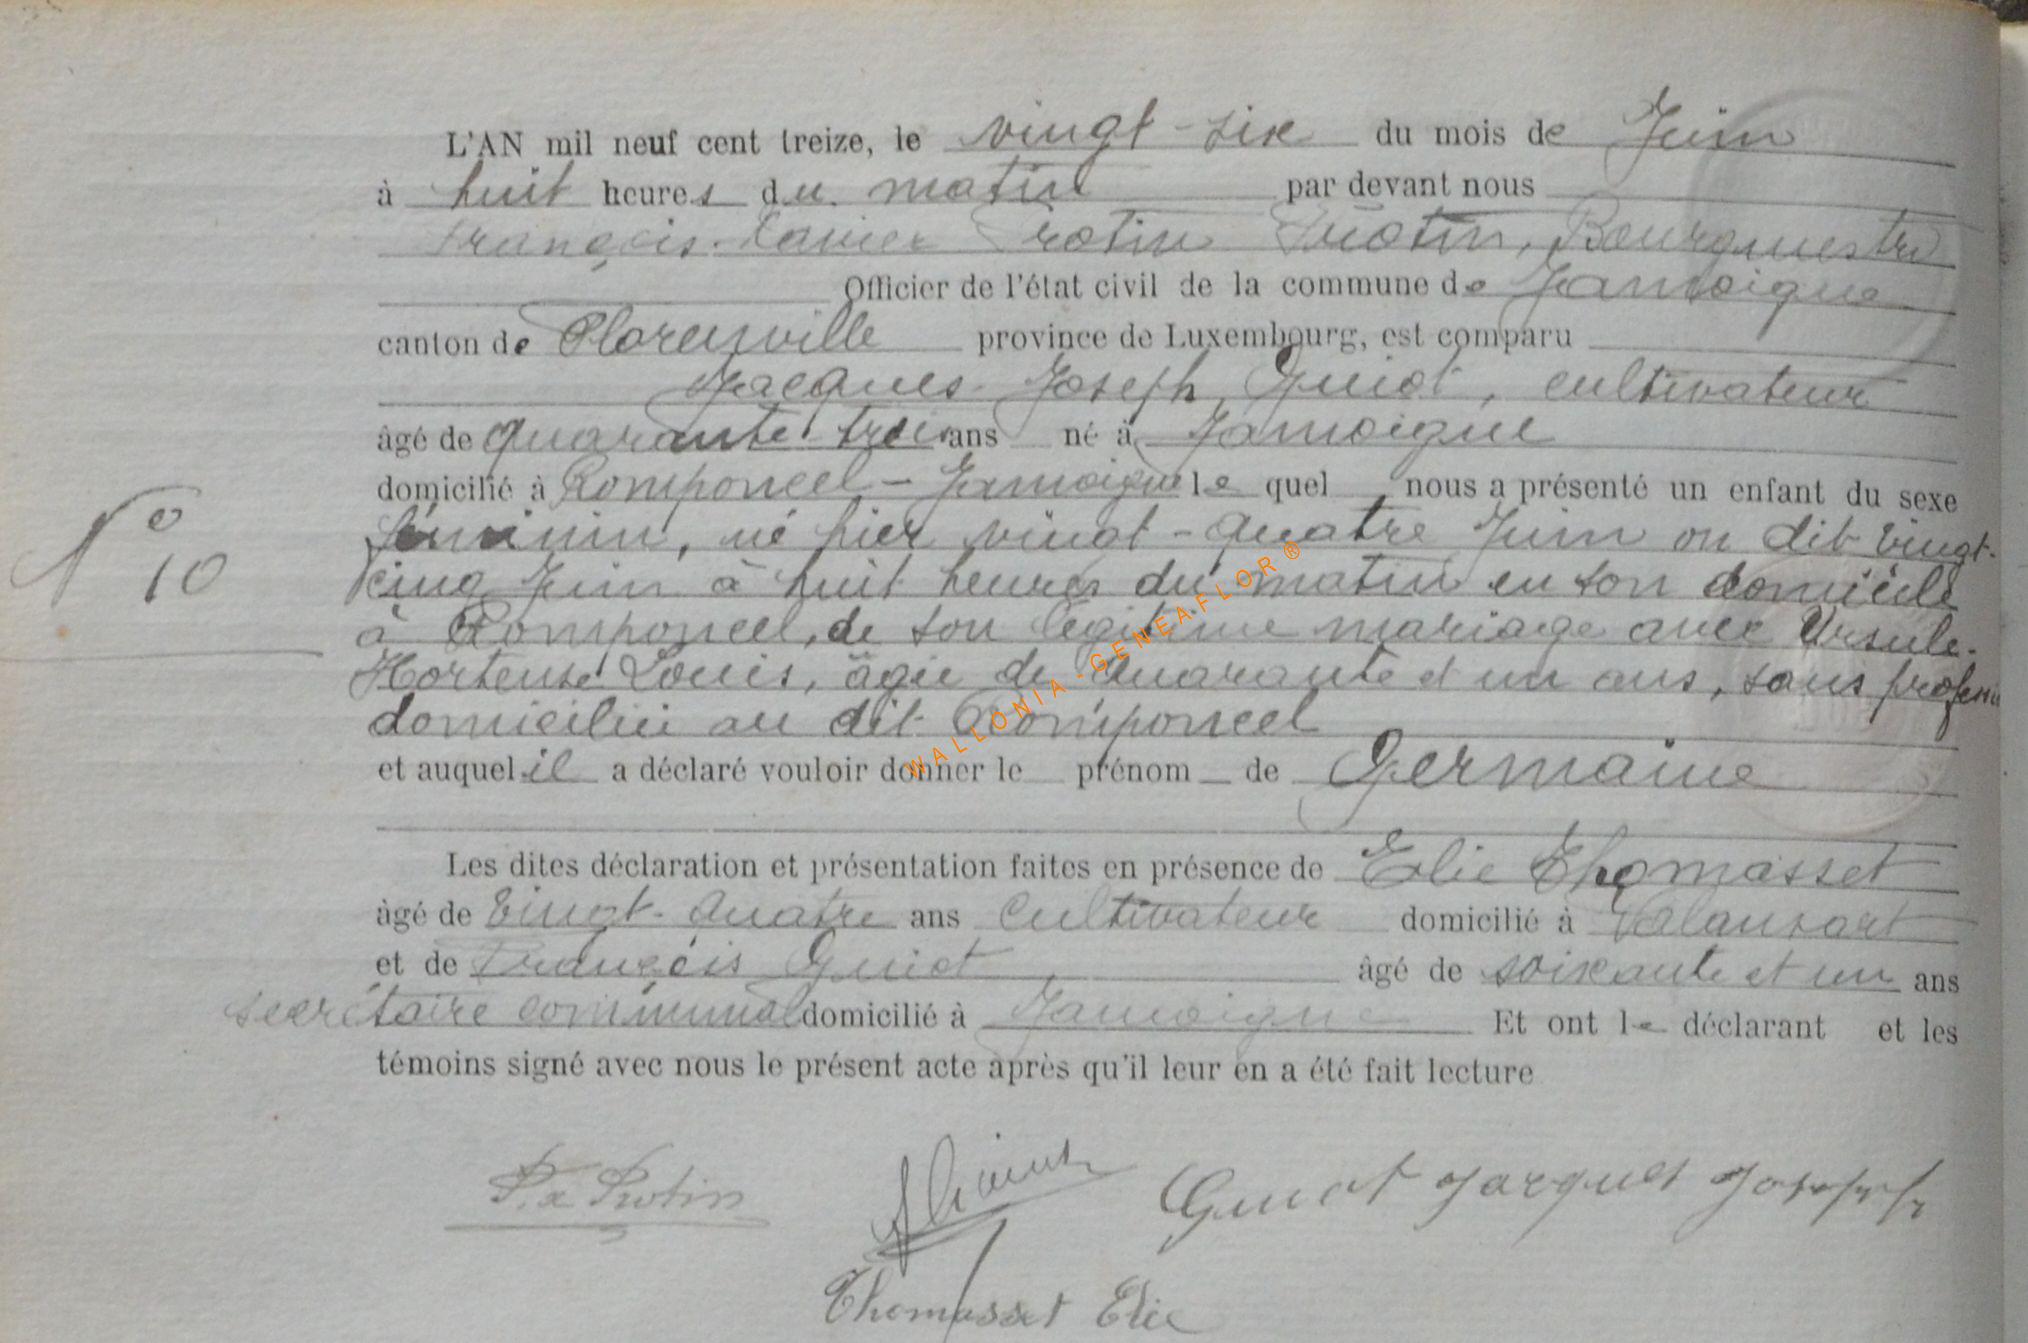 L'AN mil neuf cent treize, le vingt-six du mois de Juin
à huit heures du matin par devant nous
François-Xavier Protin, Bourgmestre
Officier de l'état civil de la commune de Jamoigne
canton de Florenville province de Luxembourg, est comparu
Jacques Joseph Guiot, cultivateur
âgé de quarante trois ans né à Jamoigne
domicilié à Romponcel - Jamoigne le quel nous a présenté un enfant du sexe
N° 10
féminin, né hier vingt-quatre Juin on dit vingt-
cinq Juin à huit heures du matin en son domicile
à Romponcel, de son légitime mariage avec Ursule-
Hortense Louis, âgée de quarante et un ans, sans profession
domiciliée au dit Romponcel
et auquel il a déclaré vouloir donner le prénom de Germaine
Les dites déclaration et présentation faites en présence de Elie Thomasset
âgé de vingt-quatre ans cultivateur domicilié à Valansart
et de François Guiot, âgé de soixante et un ans
secrétaire communal domicilié à Jamoigne Et ont le déclarant et les
témoins signé avec nous le présent acte après qu'il leur en a été fait lecture
F. x Protin Guiot Jacques Joseph
Thomasset Elie
WALLONIA-GENEAFLOR®